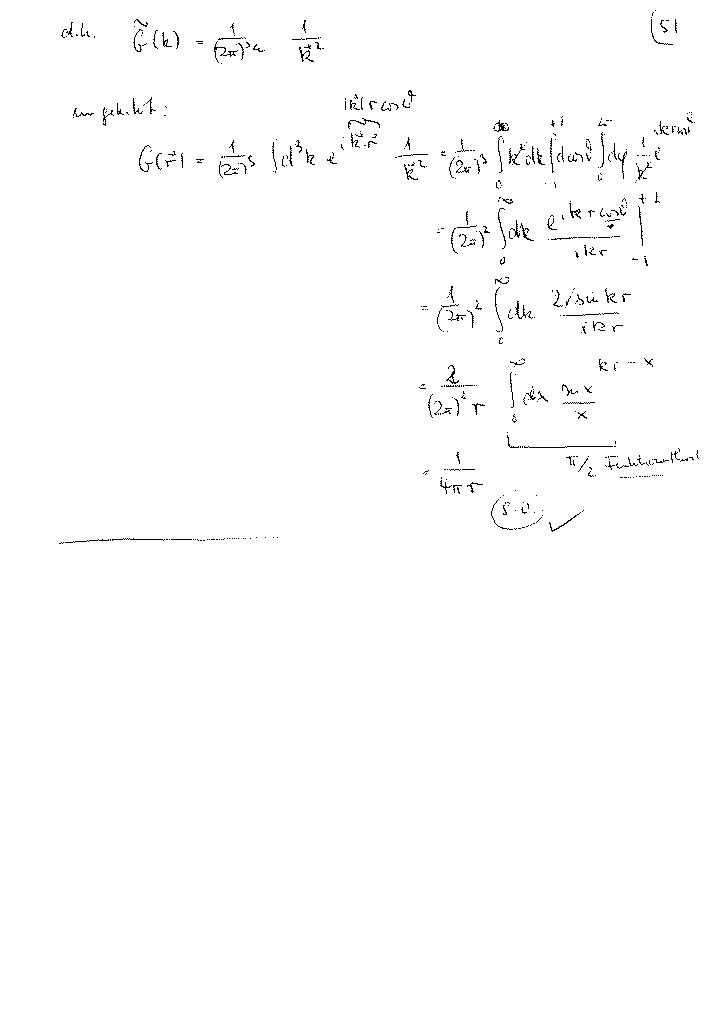 (51
d.h. G̃(k) = 1/(2π)^{3/2} 1/k⃗²
umgekehrt:
|k⃗| r cosϑ
G(r⃗) = 1/(2π)³ ∫ d³k e^{i k⃗·r⃗} 1/k⃗² = 1/(2π)³ ∫₀^∞ k² dk ∫₋₁^{+1} dcosϑ ∫₀^{2π} dφ 1/k² e^{ikr cosϑ}
= 1/(2π)² ∫₀^∞ dk e^{ikr cosϑ}/ikr |₋₁^{+1}
= 1/(2π)² ∫₀^∞ dk 2i sin kr/ikr
kr = x
= 2/(2π)² r ∫₀^∞ dx sin x/x
π/2 Funktionentheorie
= 1/4πr
s.o. ✓